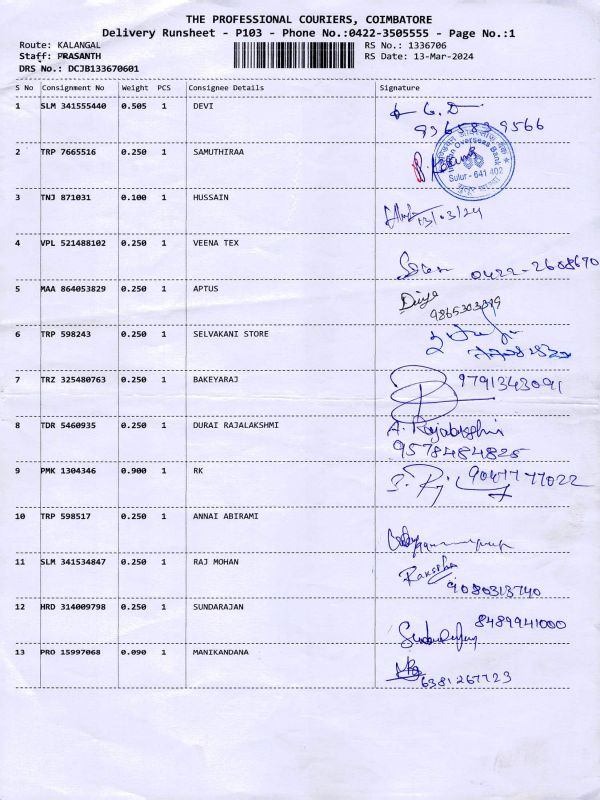 THE PROFESSIONAL COURIERS, COIMBATORE
Delivery Runsheet - P103 - Phone No.:0422-3505555 - Page No.:1
Route: KALANGAL RS No.: 1336706
Staff: PRASANTH RS Date: 13-Mar-2024
DRS No.: DCJB133670601
S No Consignment No Weight PCS Consignee Details Signature
1 SLM 341555440 0.505 1 DEVI
2 TRP 7665516 0.250 1 SAMUTHIRAA
Indian Overseas Bank
Sulur - 641 402
3 TNJ 871031 0.100 1 HUSSAIN 13/03/24
4 VPL 521488102 0.250 1 VEENA TEX
0422-2688670
5 MAA 864053829 0.250 1 APTUS Divya
6 TRP 598243 0.250 1 SELVAKANI STORE
7 TRZ 325480763 0.250 1 BAKEYARAJ 9791343091
8 TDR 5460935 0.250 1 DURAI RAJALAKSHMI A. Rajalakshmi
9578484825
9 PMK 1304346 0.900 1 RK
10 TRP 598517 0.250 1 ANNAI ABIRAMI
11 SLM 341534847 0.250 1 RAJ MOHAN
9080313740
12 HRD 314009798 0.250 1 SUNDARAJAN 8489941000
13 PRO 15997068 0.090 1 MANIKANDANA
6381267723